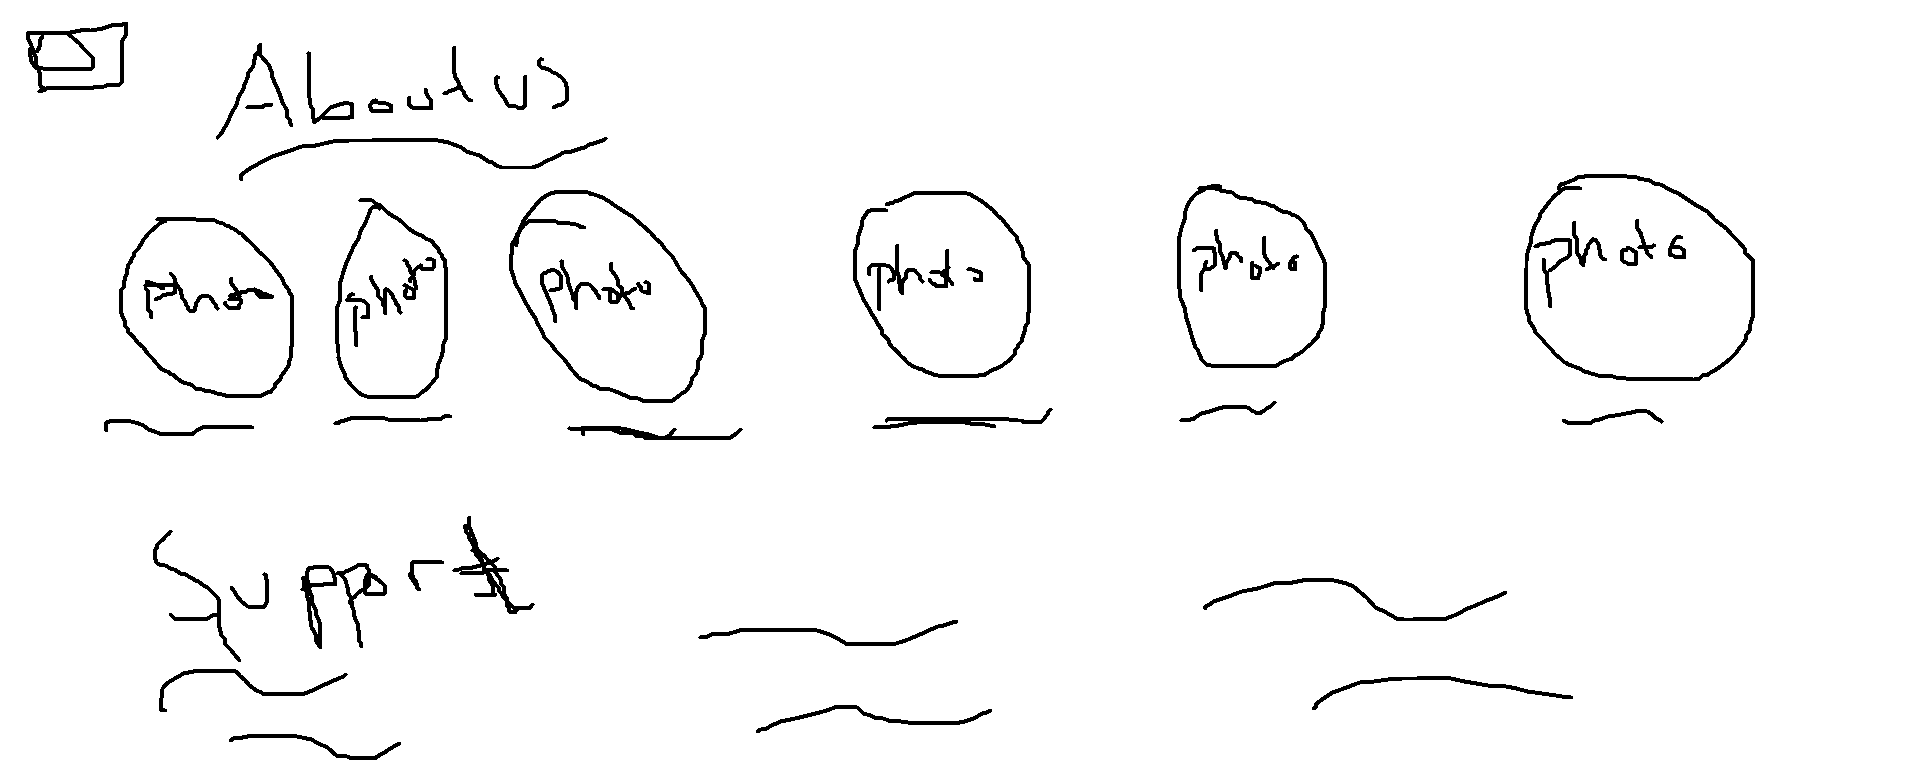 About us
photo photo photo photo photo photo
Support